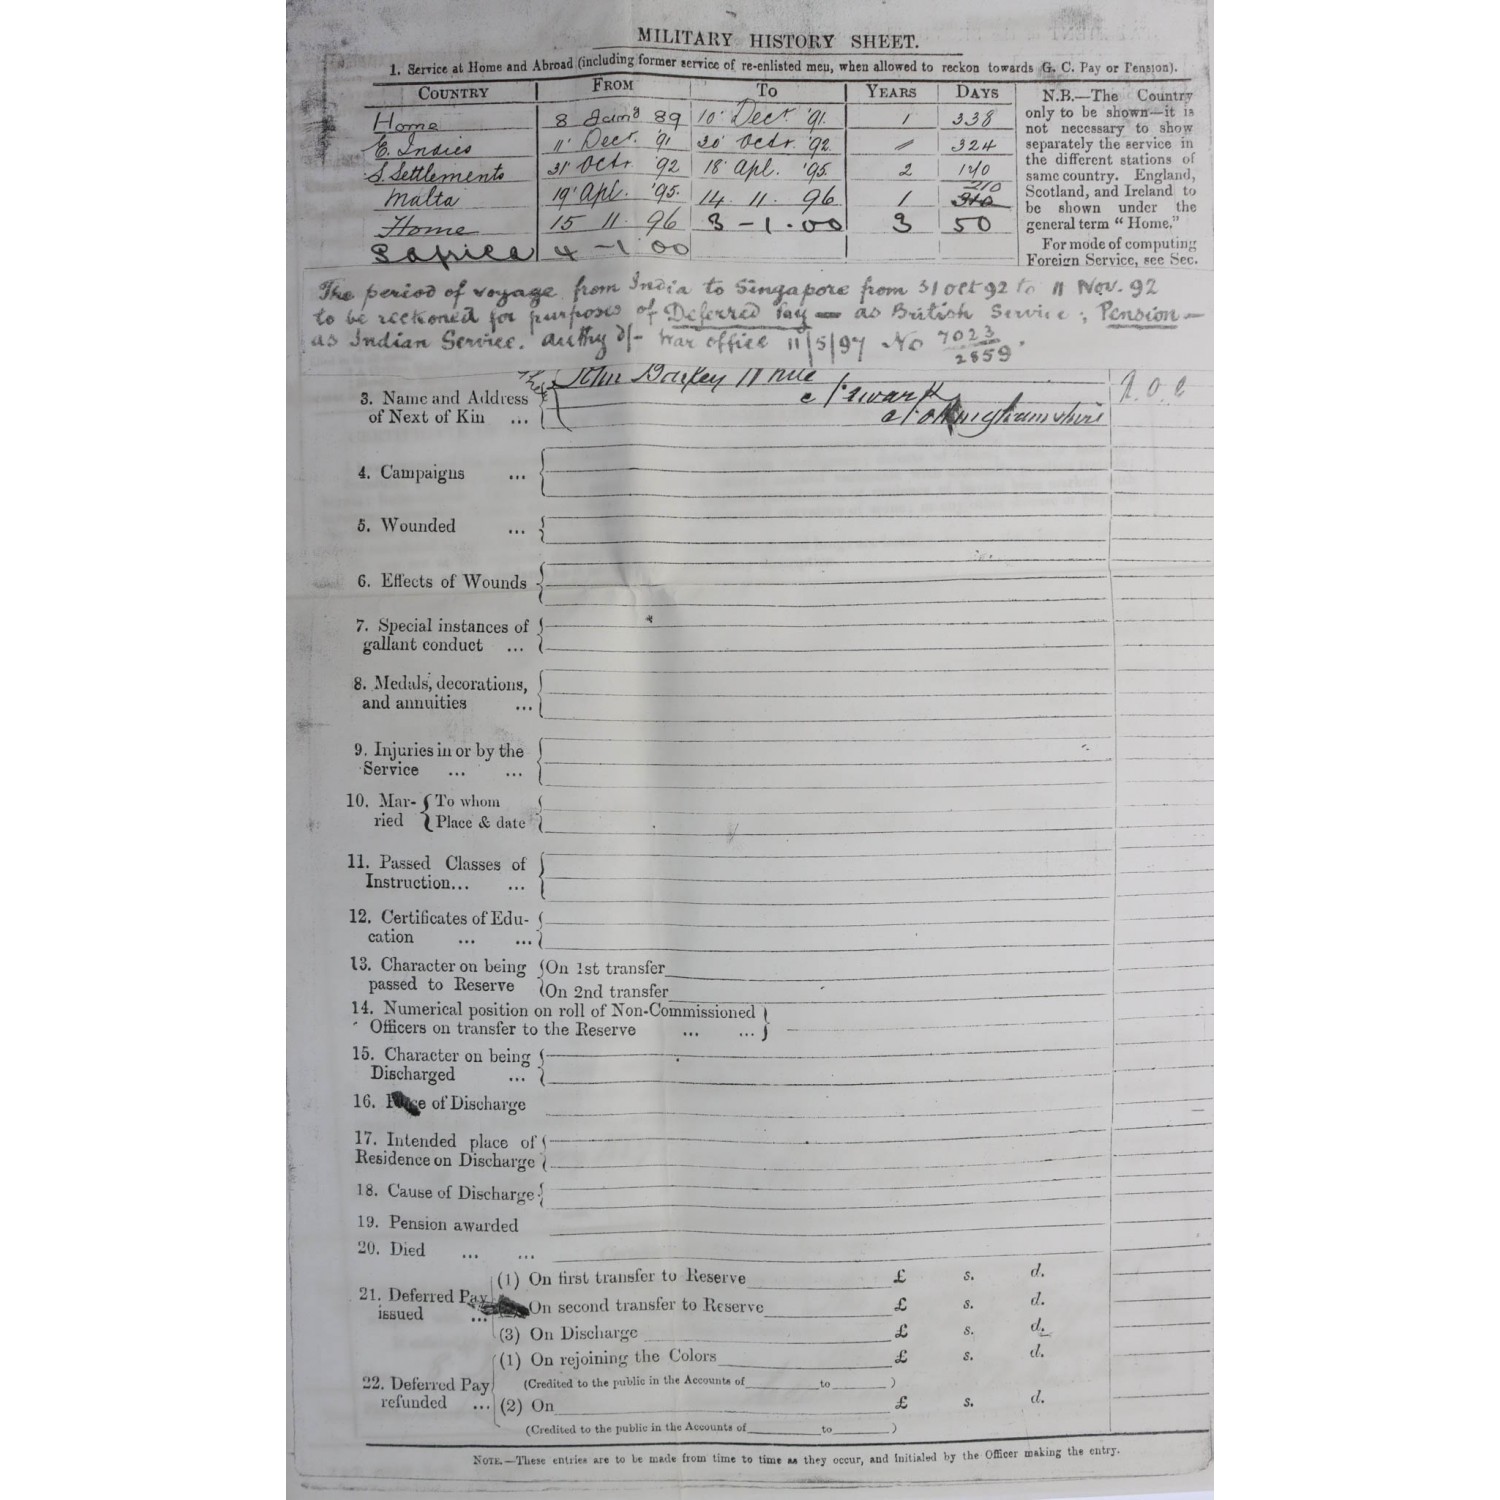 MILITARY HISTORY SHEET.
1. Service at Home and Abroad (including former service of re-enlisted men, when allowed to reckon towards G. C. Pay or Pension).
COUNTRY FROM TO YEARS DAYS
Home 8 89 10 Decr. '91. 1 338
E. Indies 11 Decr. '91 30 Octr. '92 〃 324
S. Settlements 31 Octr. '92 18 Apl. '95 2 170
Malta 19 Apl. '95. 14. 11. 96 1 210
Home 15 11. 96 3-1.00 3 50
S Africa 4-1 00
N.B.—The Country
only to be shown—it is
not necessary to show
separately the service in
the different stations of
same country. England,
Scotland, and Ireland to
be shown under the
general term "Home."
For mode of computing
Foreign Service, see Sec.
The period of voyage from India to Singapore from 31 Oct 92 to 11 Nov. 92
to be reckoned for purposes of Deferred Pay — as British Service; Pension —
as Indian Service. Authy d/- War office 11/5/97 No 7023/2859.
3. Name and Address
of Next of Kin ...
John
Newark
Nottinghamshire
4. Campaigns ...
5. Wounded ...
6. Effects of Wounds
7. Special instances of
gallant conduct ...
8. Medals, decorations,
and annuities ...
9. Injuries in or by the
Service ... ...
10. Mar- To whom
ried Place & date
11. Passed Classes of
Instruction... ...
12. Certificates of Edu-
cation ... ...
13. Character on being On 1st transfer
passed to Reserve On 2nd transfer
14. Numerical position on roll of Non-Commissioned
Officers on transfer to the Reserve ... ...
15. Character on being
Discharged ...
16. of Discharge
17. Intended place of
Residence on Discharge
18. Cause of Discharge
19. Pension awarded
20. Died ... ...
21. Deferred Pay issued ...
(1) On first transfer to Reserve £ s. d.
On second transfer to Reserve £ s. d.
(3) On Discharge £ s. d.
22. Deferred Pay refunded ...
(1) On rejoining the Colors £ s. d.
(Credited to the public in the Accounts of to )
(2) On £ s. d.
(Credited to the public in the Accounts of to )
NOTE.—These entries are to be made from time to time as they occur, and initialed by the Officer making the entry.